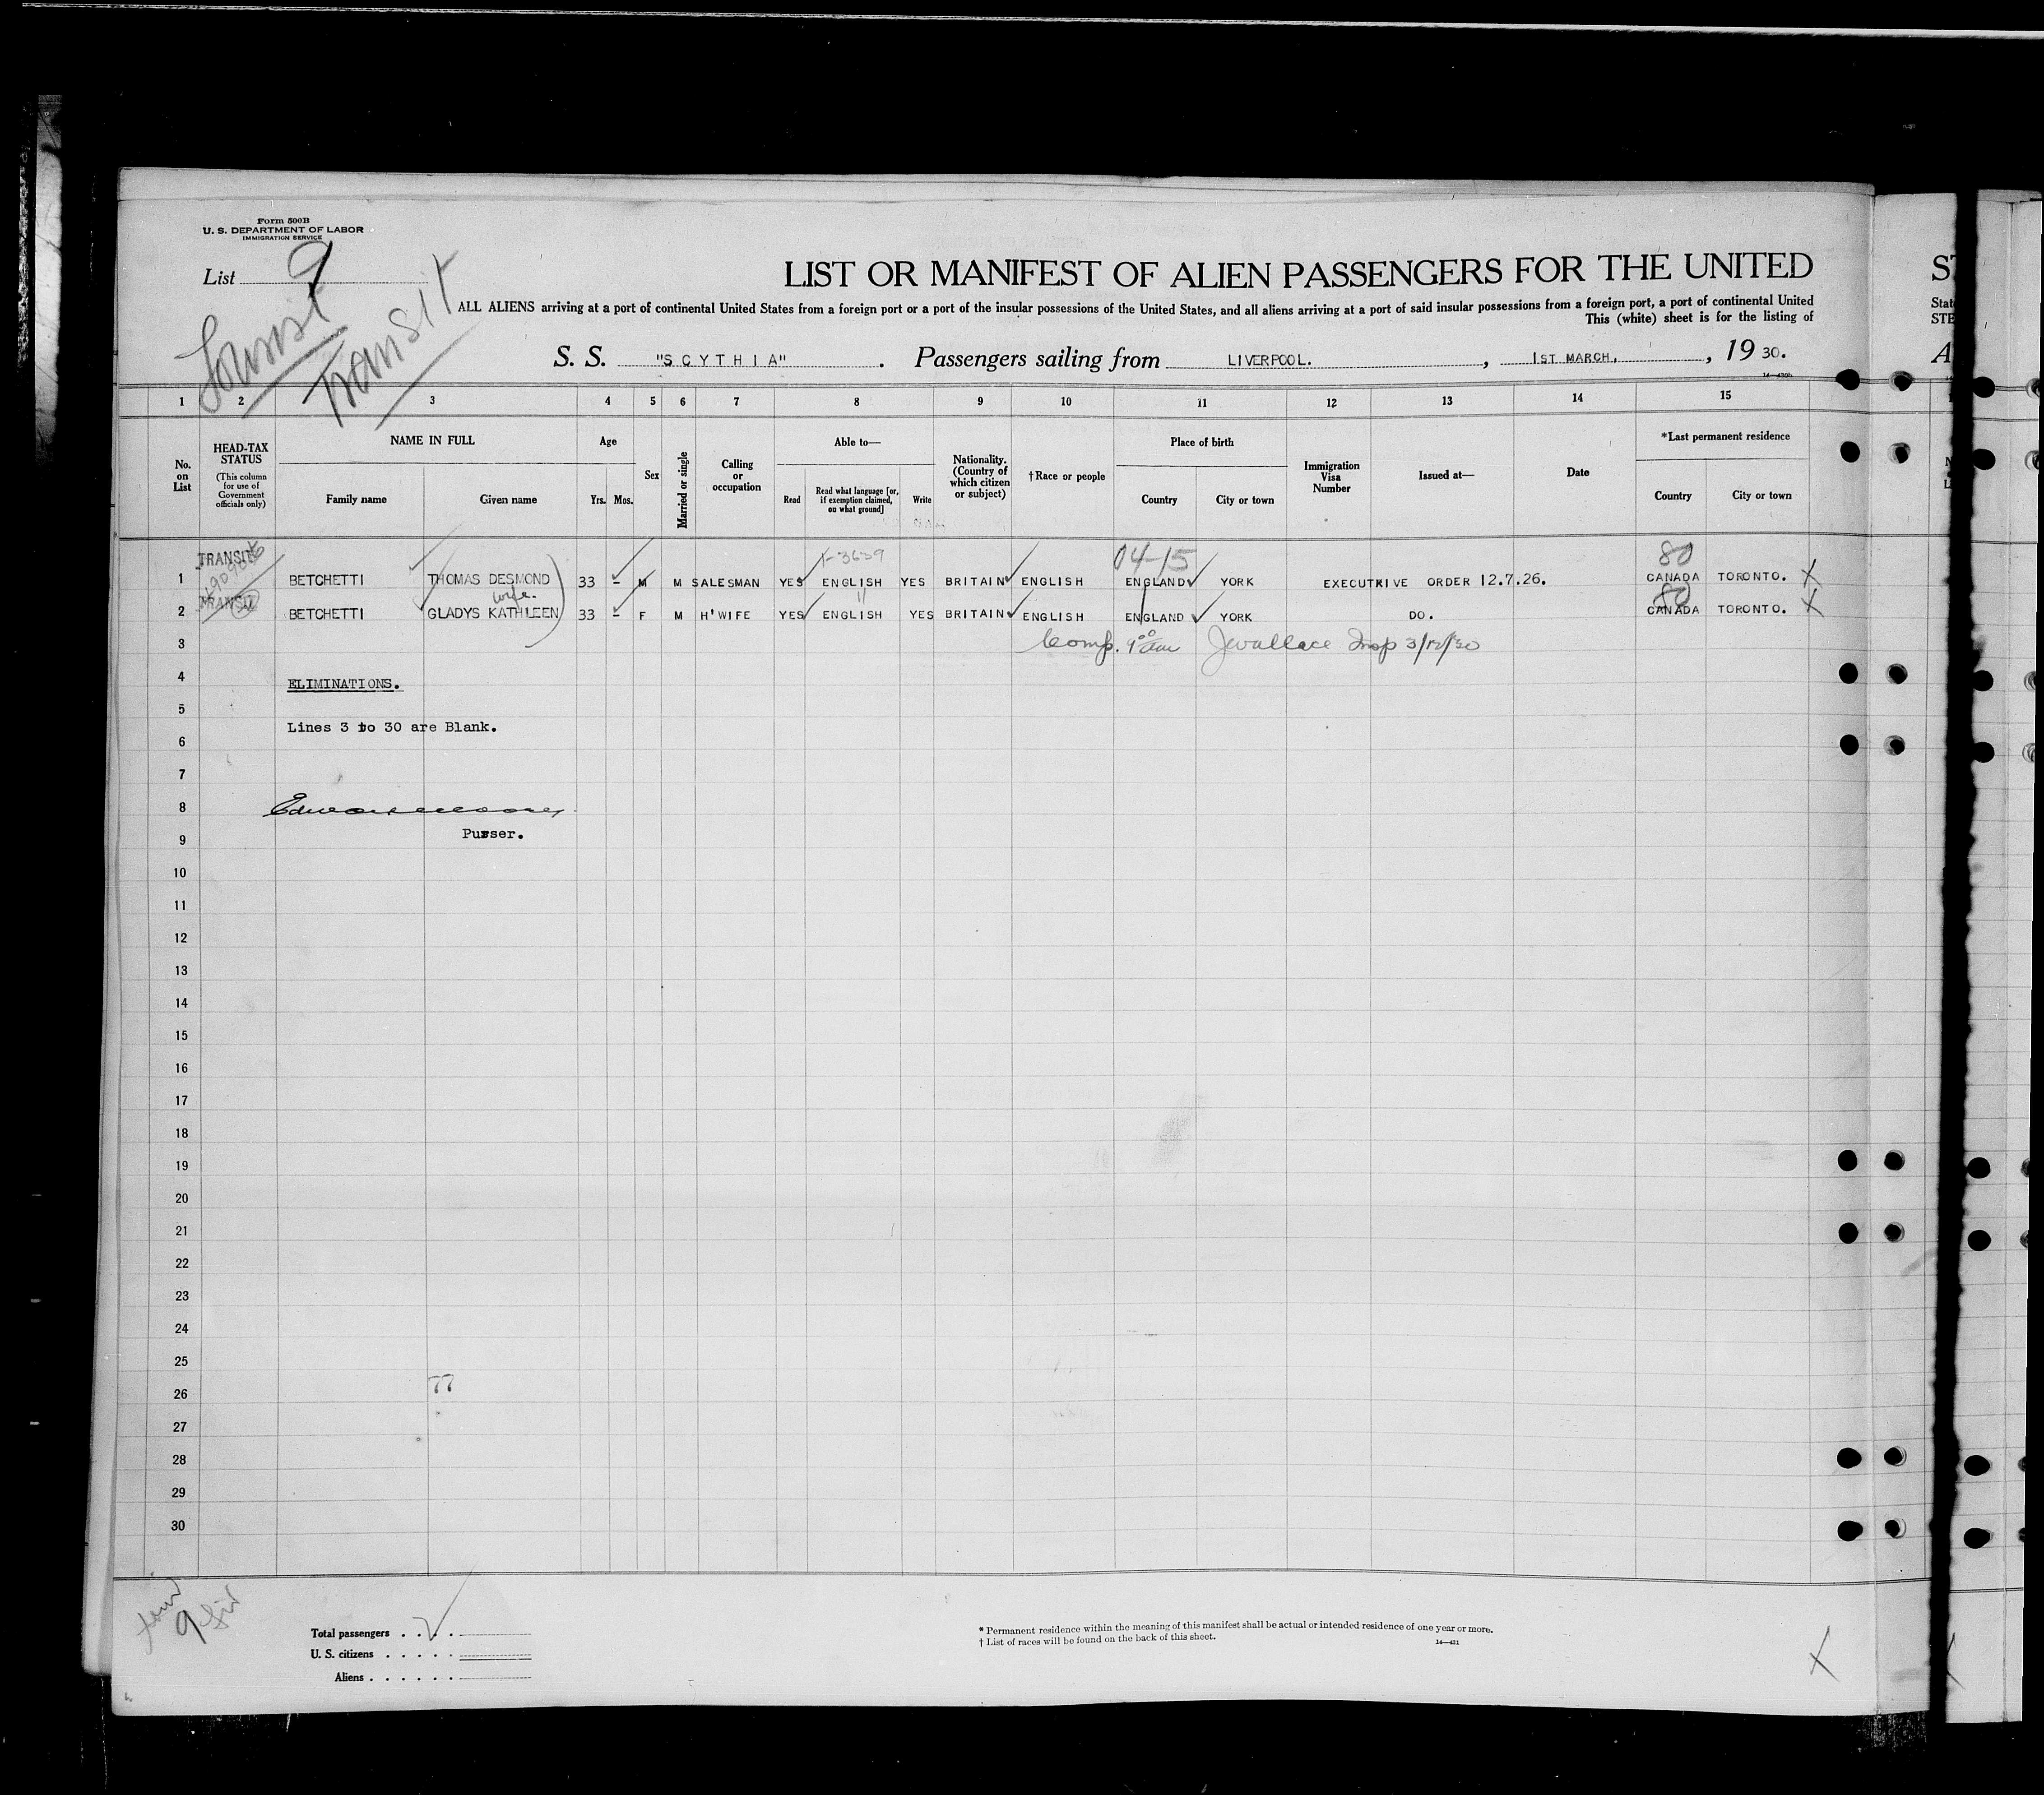 Form 500B
U. S. DEPARTMENT OF LABOR
IMMIGRATION SERVICE
List 9
Tourist
Transit
LIST OR MANIFEST OF ALIEN PASSENGERS FOR THE UNITED
ALL ALIENS arriving at a port of continental United States from a foreign port or a port of the insular possessions of the United States, and all aliens arriving at a port of said insular possessions from a foreign port, a port of continental United
This (white) sheet is for the listing of
S. S. "SCYTHIA". Passengers sailing from LIVERPOOL., 1ST MARCH., 1930.
1 2 3 4 5 6 7 8 9 10 11 12 13 14 15
No. on List
HEAD-TAX STATUS
(This column for use of Government officials only)
NAME IN FULL
Family name Given name
Age
Yrs. Mos.
Sex
Married or single
Calling or occupation
Able to—
Read
Read what language [or, if exemption claimed, on what ground]
Write
Nationality. (Country of which citizen or subject)
†Race or people
Place of birth
Country City or town
Immigration Visa Number
Issued at—
Date
*Last permanent residence
Country City or town
TRANSIT X-3639 04-15 80
1 BETCHETTI THOMAS DESMOND 33 – M M SALESMAN YES ENGLISH YES BRITAIN ENGLISH ENGLAND YORK EXECUTRIVE ORDER 12.7.26. CANADA TORONTO. X
TRANSIT wife. 11 80
2 BETCHETTI GLADYS KATHLEEN 33 – F M H'WIFE YES ENGLISH YES BRITAIN ENGLISH ENGLAND YORK DO. CANADA TORONTO. X
3 Comp. 9 00 am J Wallace Insp 3/12/30
4 ELIMINATIONS.
5
Lines 3 to 30 are Blank.
6
7
8
Purser.
9
10
11
12
13
14
15
16
17
18
19
20
21
22
23
24
25
26 77
27
28
29
30
9
Total passengers . . . . 2
U. S. citizens . . . . .
Aliens . . . . . .
* Permanent residence within the meaning of this manifest shall be actual or intended residence of one year or more.
† List of races will be found on the back of this sheet.
14—431
X